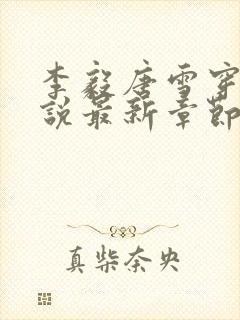 李毅唐雪穿
說最新章節
真柴奈央